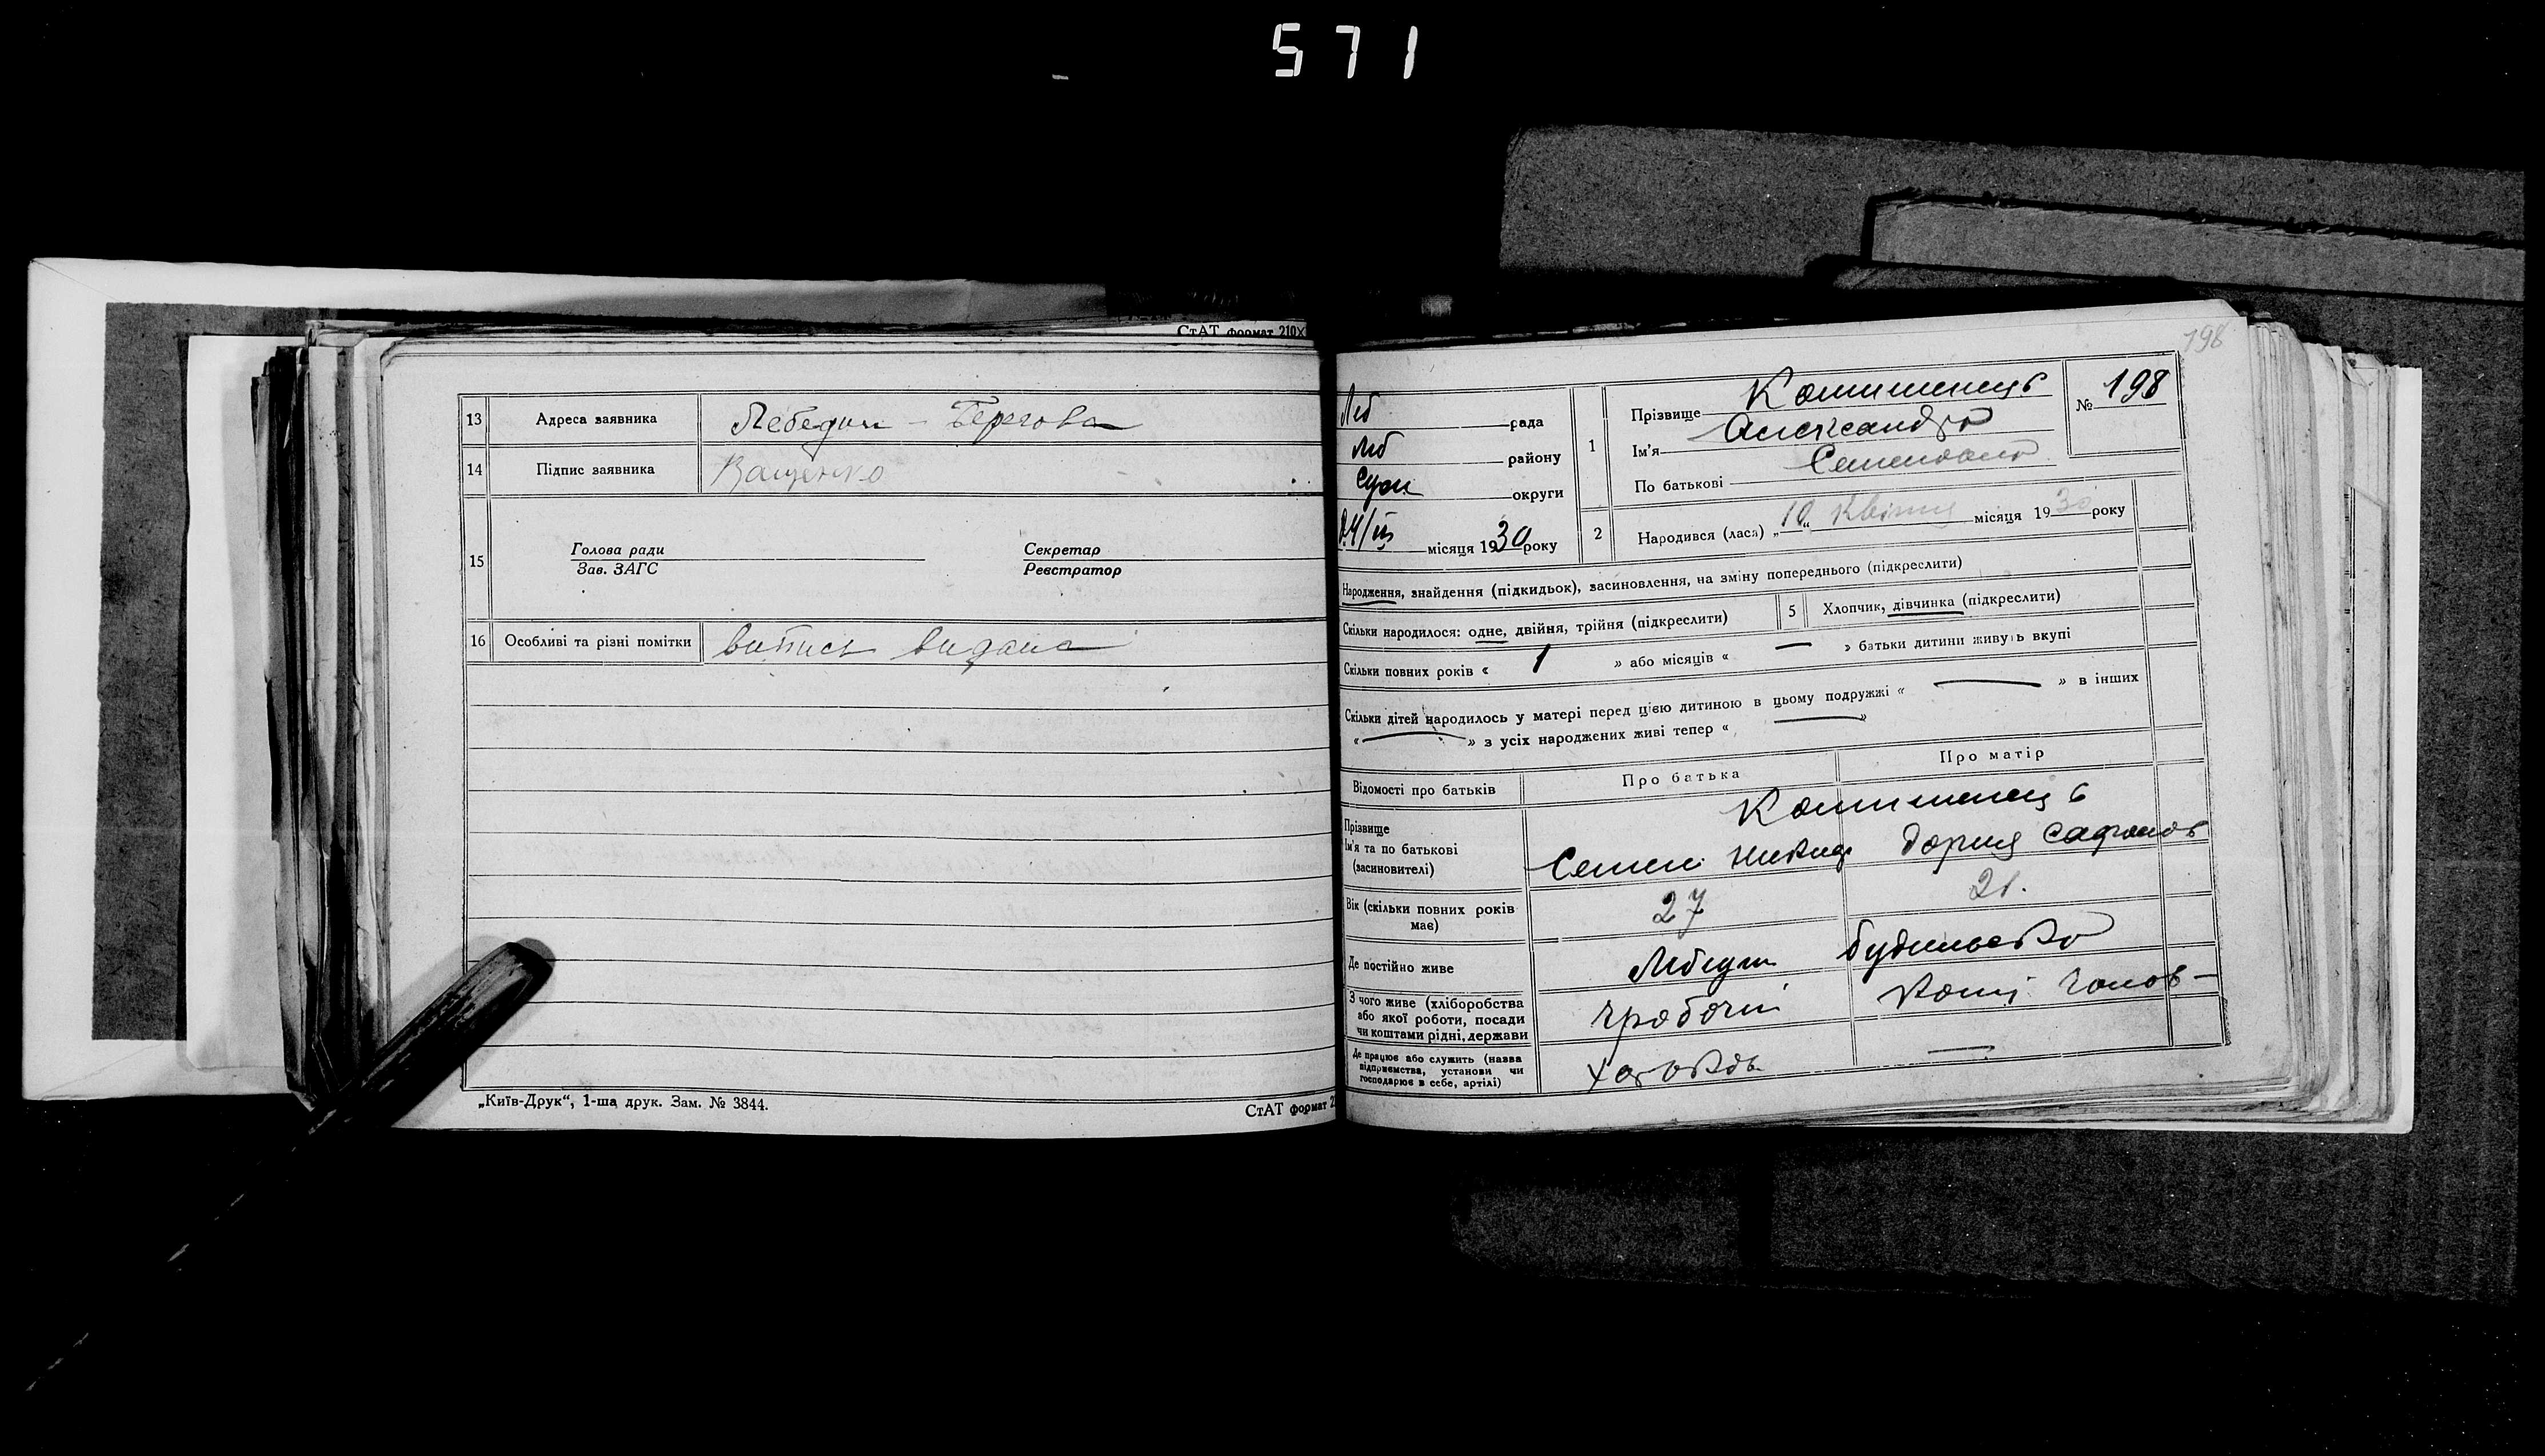 571
СтАТ формат 210×
13 Адреса заявника Лебедин - Берегова
14 Підпис заявника Ващенко
15 Голова ради Секретар
Зав. ЗАГС Реєстратор
16 Особливі та різні помітки випись видана
„Київ-Друк“, 1-ша друк. Зам. № 3844.
СтАТ формат 2
198
Леб рада
Леб району
Сум округи
місяця 1930 року
1 Прізвище
Ім'я Александра
По батькові Семеновна
№ 198
2 Народився (лася) „10“ Квітня місяця 1930 року
Народження, знайдення (підкидьок), засиновлення, на зміну попереднього (підкреслити)
Скільки народилося: одне, двійня, трійня (підкреслити) 5 Хлопчик, дівчинка (підкреслити)
Скільки повних років « 1 » або місяців « — » батьки дитини живуть вкупі
Скільки дітей народилось у матері перед цією дитиною в цьому подружжі « — » в інших
« — » з усіх народжених живі тепер « — »
Відомості про батьків Про батька Про матір
Прізвище
Ім'я та по батькові
(засиновителі) Семен Никид Дария Сафонов
Вік (скільки повних років
має) 27 21.
Де постійно живе Лебедин
З чого живе (хліборобства
або якої роботи, посади
чи коштами рідні, держави
Де працює або служить (назва
підприємства, установи чи
господарює в себе, артілі) Харьков —